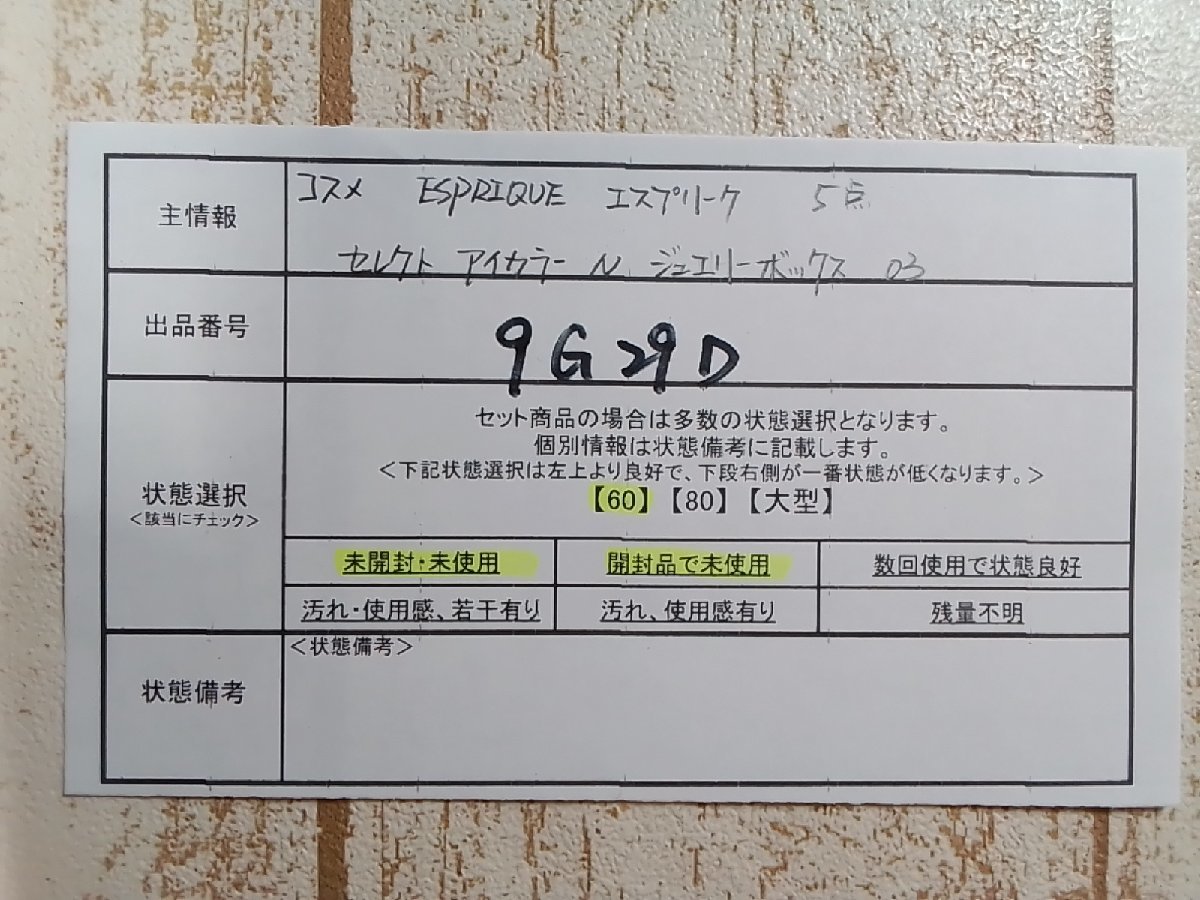 主情報
コスメ ESPRIQUE エスプリーク 5点
セレクト アイカラー N ジュエリーボックス 03
出品番号
9G29D
状態選択
<該当にチェック>
セット商品の場合は多数の状態選択となります。
個別情報は状態備考に記載します。
<下記状態選択は左上より良好で、下段右側が一番状態が低くなります。>
【60】【80】【大型】
未開封・未使用 開封品で未使用 数回使用で状態良好
汚れ・使用感、若干有り 汚れ、使用感有り 残量不明
状態備考
<状態備考>